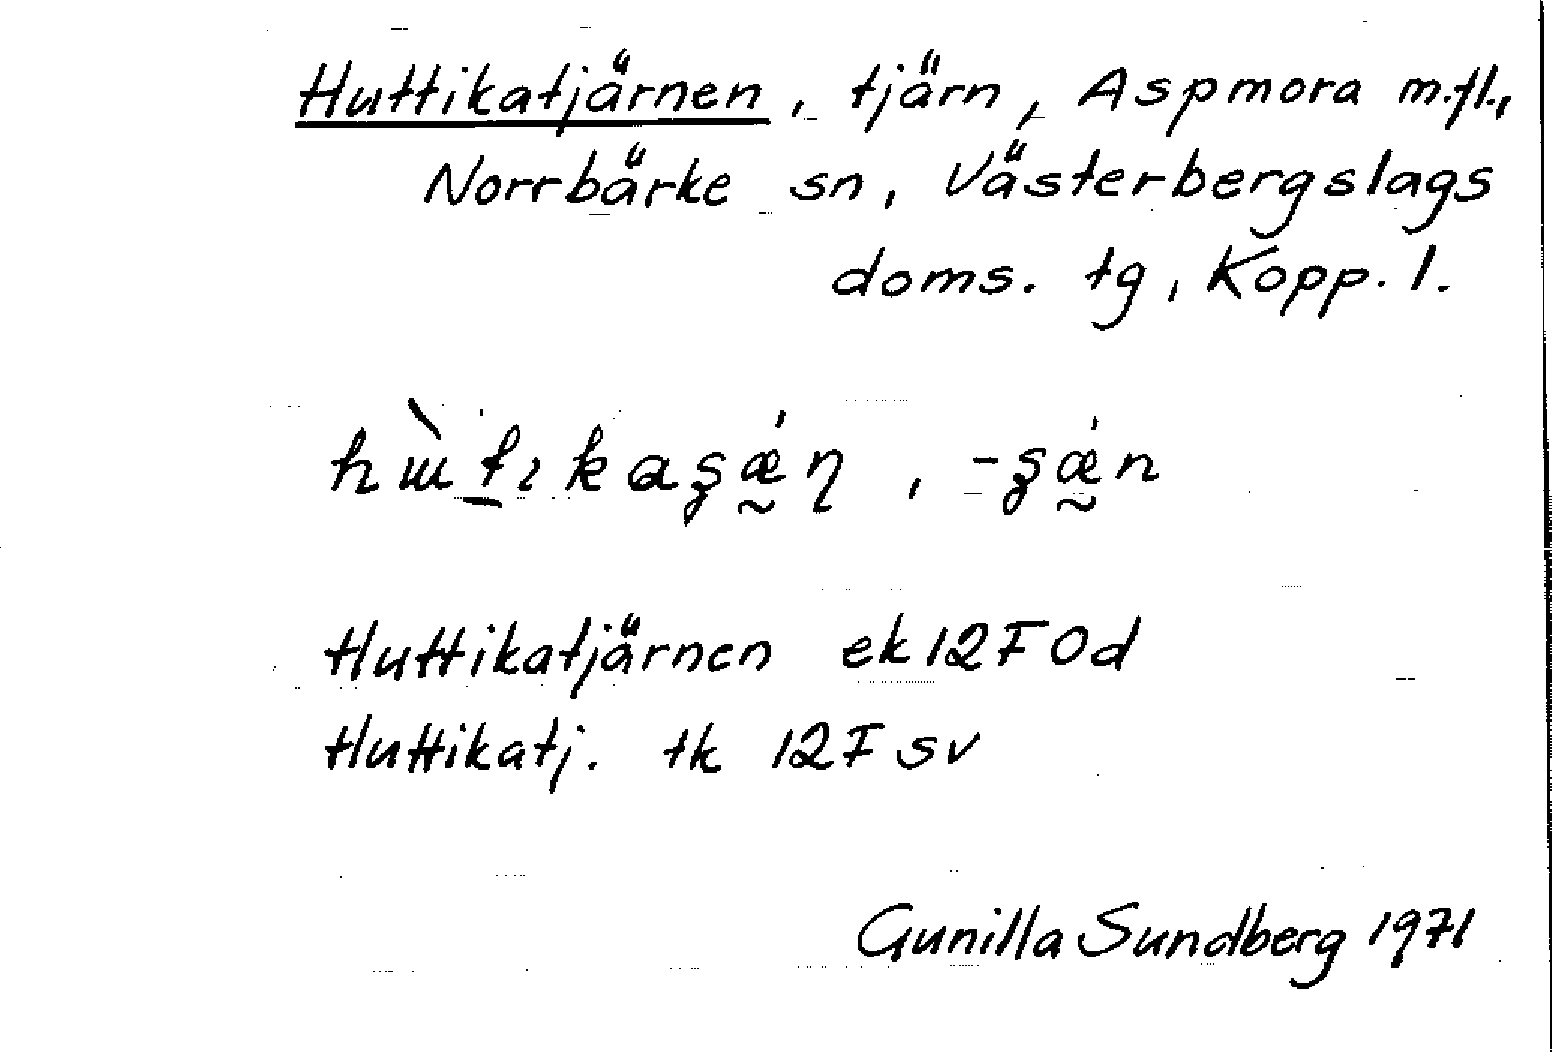 Huttikatjärnen, tjärn, Aspmora m.fl.,
Norrbärke sn, Västerbergslags
doms. tg, Kopp. l.
Huttikatjärnen ek 12F 0d
Huttikatj. tk 12F sv
Gunilla Sundberg 1971